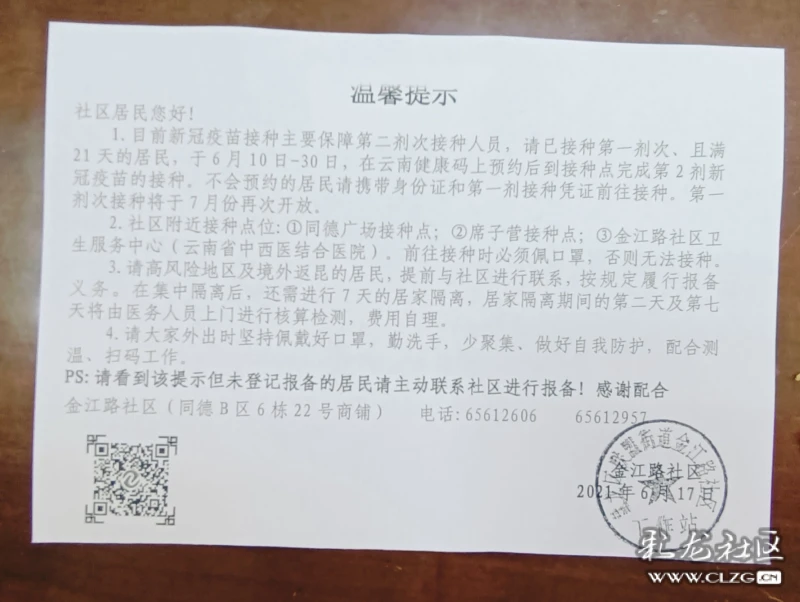 温馨提示
社区居民您好！
1.目前新冠疫苗接种主要保障第二剂次接种人员，请已接种第一剂次、且满
21天的居民，于6月10日-30日，在云南健康码上预约后到接种点完成第2剂新
冠疫苗的接种。不会预约的居民请携带身份证和第一剂接种凭证前往接种。第一
剂次接种将于7月份再次开放。
2.社区附近接种点位：①同德广场接种点；②席子营接种点；③金江路社区卫
生服务中心（云南省中西医结合医院）。前往接种时必须佩口罩，否则无法接种。
3.请高风险地区及境外返昆的居民，提前与社区进行联系，按规定履行报备
义务。在集中隔离后，还需进行7天的居家隔离，居家隔离期间的第二天及第七
天将由医务人员上门进行核算检测，费用自理。
4.请大家外出时坚持佩戴好口罩，勤洗手，少聚集、做好自我防护，配合测
温、扫码工作。
PS:请看到该提示但未登记报备的居民请主动联系社区进行报备！感谢配合
金江路社区（同德B区6栋22号商铺） 电话:65612606 65612957
金江路社区
2021年6月17日
联盟街道金江路社区
工作站
彩龙社区
WWW.CLZG.CN